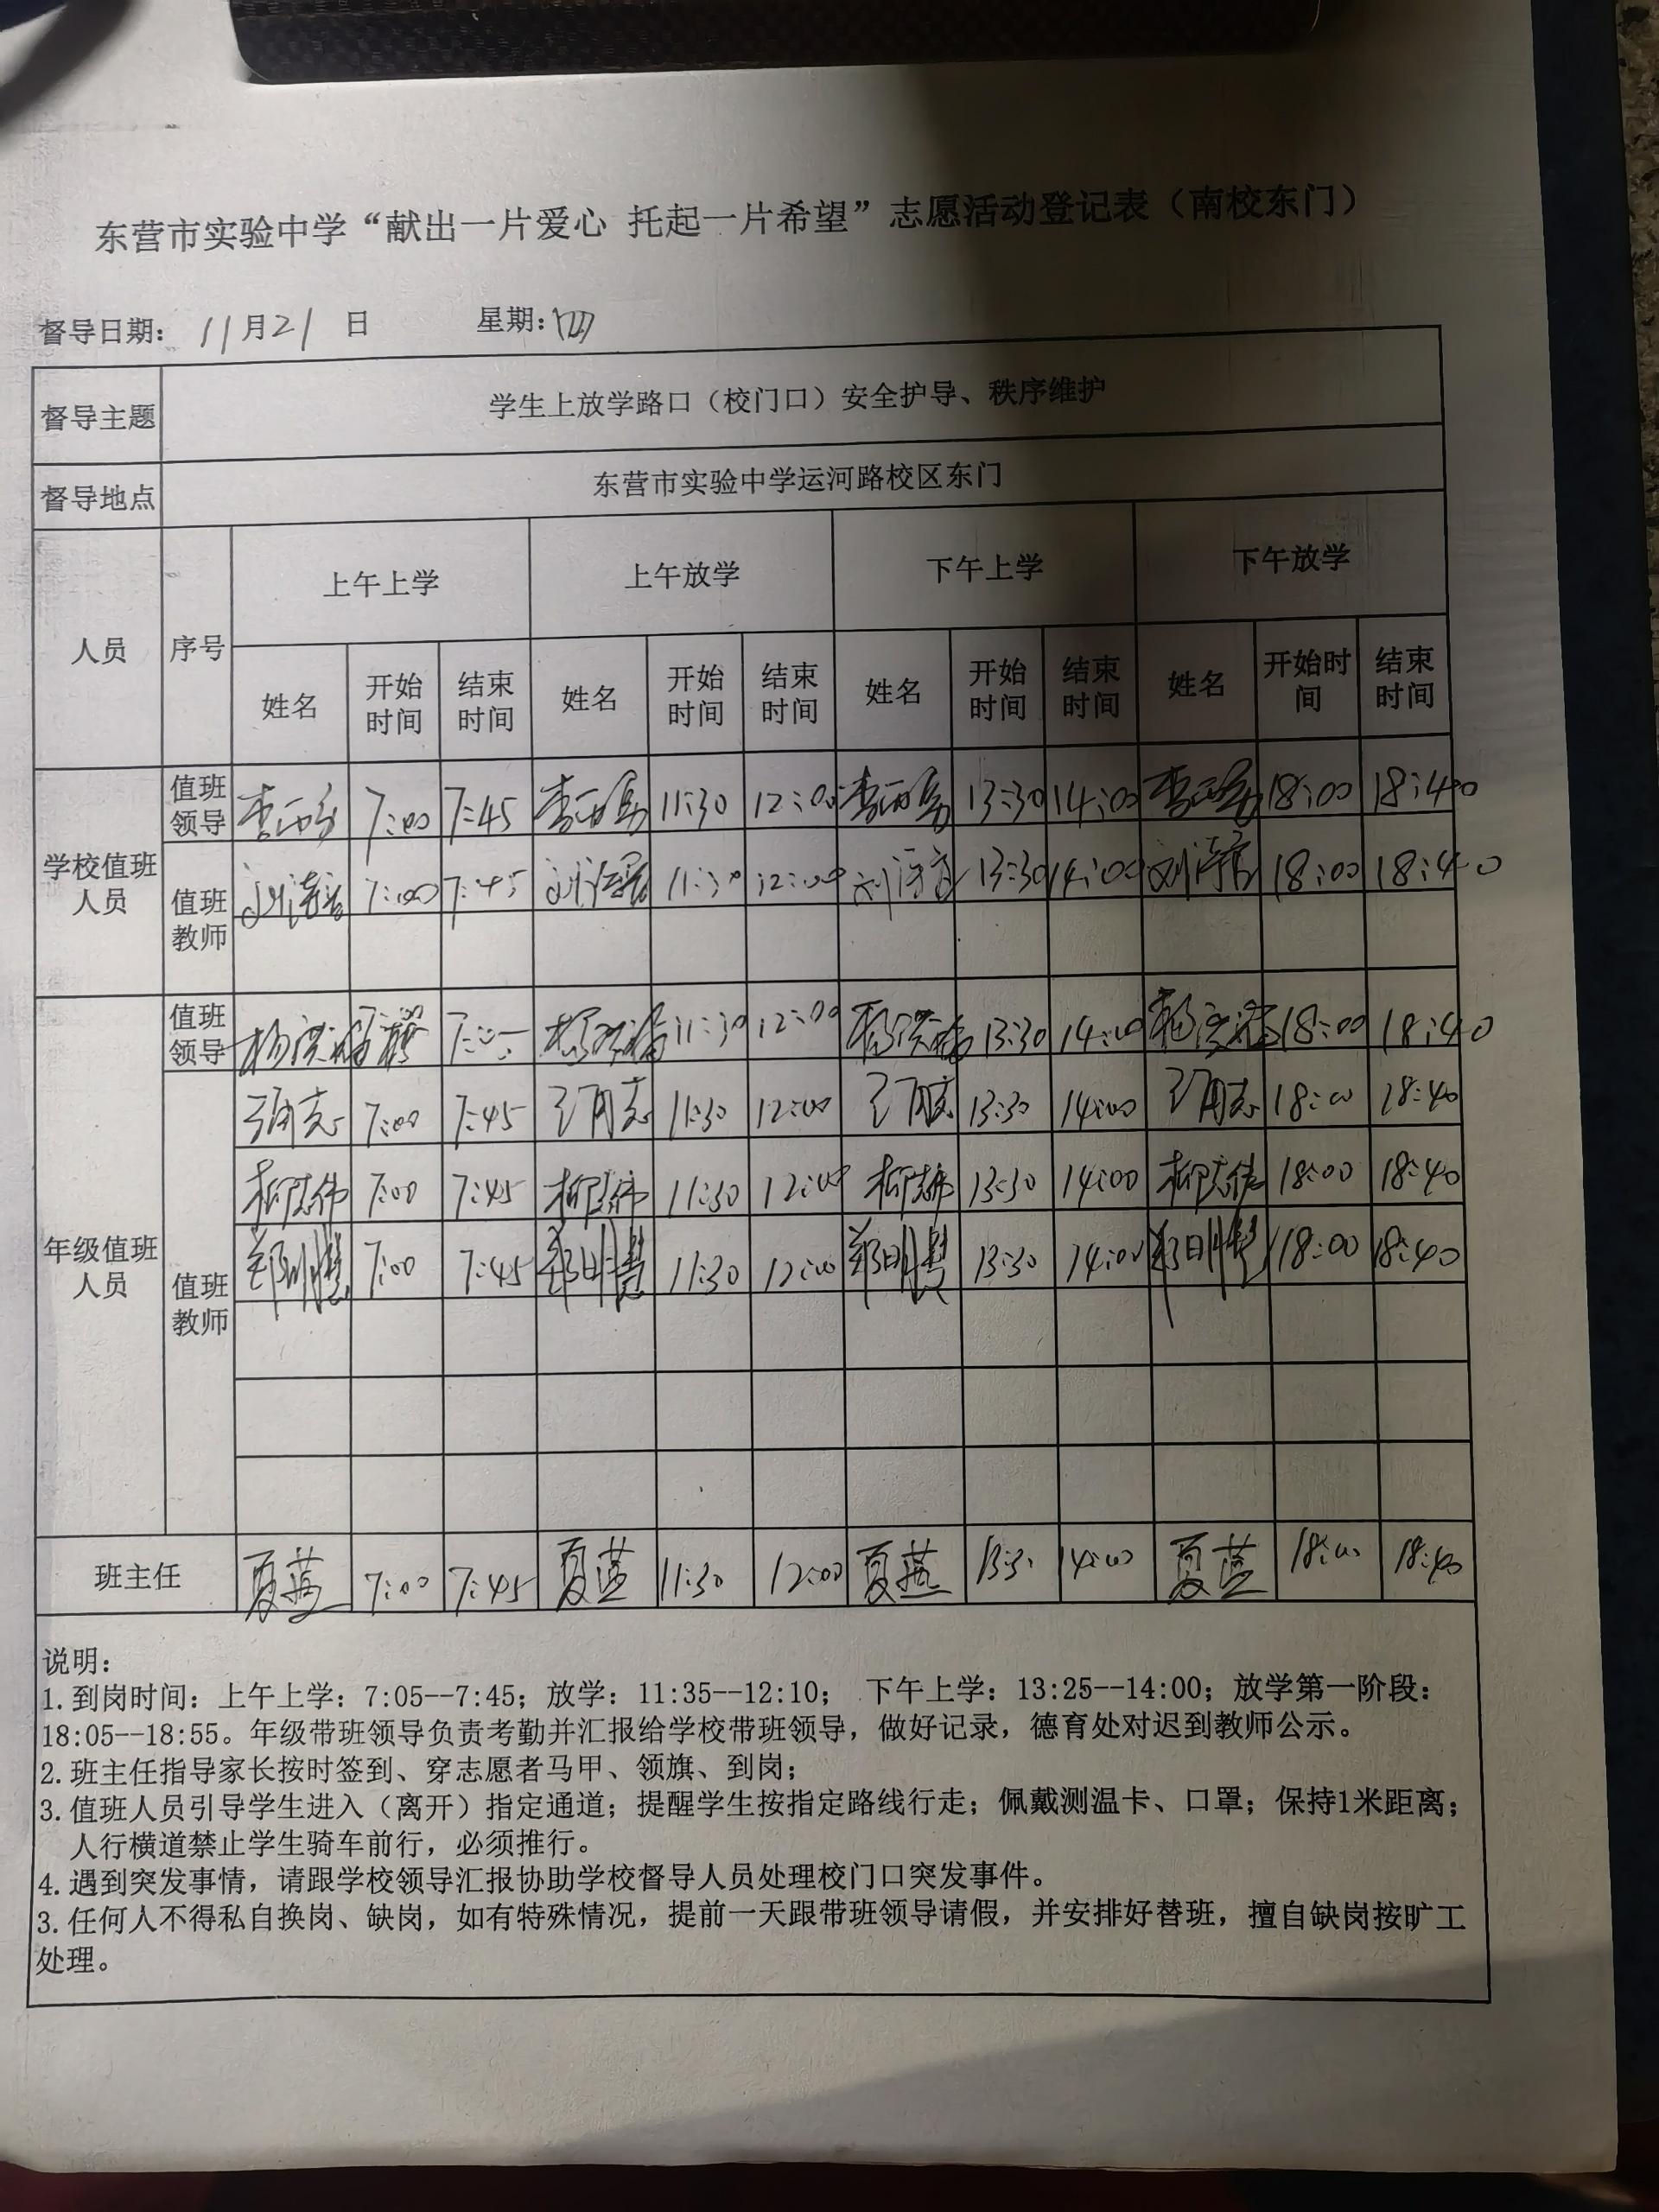 东营市实验中学“献出一片爱心 托起一片希望”志愿活动登记表（南校东门）
督导日期： 11月21 日 星期：四
督导主题 学生上放学路口（校门口）安全护导、秩序维护
督导地点 东营市实验中学运河路校区东门
人员 序号 上午上学 上午放学 下午上学 下午放学
姓名 开始时间 结束时间 姓名 开始时间 结束时间 姓名 开始时间 结束时间 姓名 开始时间 结束时间
学校值班人员 值班领导 7:00 7:45 11:30 12:00 13:30 14:00 18:00 18:40
值班教师 7:00 7:45 11:30 12:00 13:30 14:00 18:00 18:40
年级值班人员 值班领导 11:30 12:00 13:30 14:00 18:00 18:40
值班教师 7:00 7:45 11:30 12:00 13:30 14:00 18:00 18:40
7:00 7:45 11:30 12:00 13:30 14:00 18:00 18:40
郑明慧 7:00 7:45 郑明慧 11:30 12:00 郑明慧 13:30 14:00 郑明慧 18:00 18:40
班主任 夏蓝 7:00 7:45 夏蓝 11:30 12:00 夏蓝 13:30 14:00 夏蓝 18:00 18:40
说明：
1.到岗时间：上午上学：7:05--7:45；放学：11:35--12:10； 下午上学：13:25--14:00；放学第一阶段：
18:05--18:55。年级带班领导负责考勤并汇报给学校带班领导，做好记录，德育处对迟到教师公示。
2.班主任指导家长按时签到、穿志愿者马甲、领旗、到岗；
3.值班人员引导学生进入（离开）指定通道；提醒学生按指定路线行走；佩戴测温卡、口罩；保持1米距离；
人行横道禁止学生骑车前行，必须推行。
4.遇到突发事情，请跟学校领导汇报协助学校督导人员处理校门口突发事件。
3.任何人不得私自换岗、缺岗，如有特殊情况，提前一天跟带班领导请假，并安排好替班，擅自缺岗按旷工
处理。